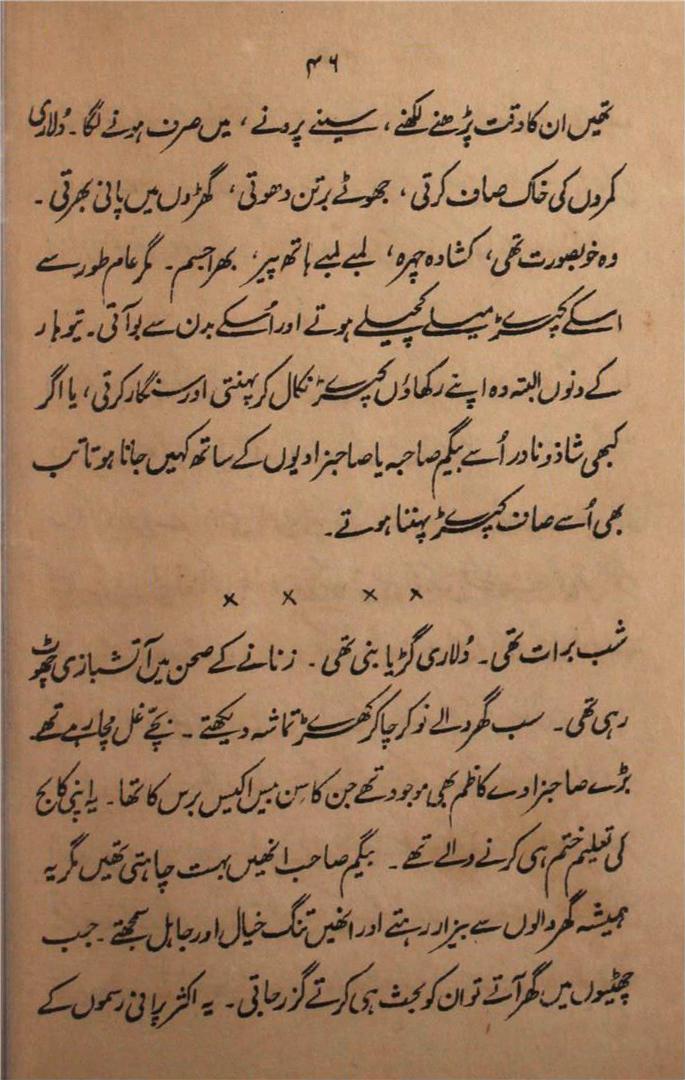 ۴۶
تھیں ان کا وقت پڑھنے لکھنے، سینے پرونے، میں صرف ہونے لگا۔ دُلاری
کمروں کی خاک صاف کرتی، جھوٹے برتن دھوتی، گھڑوں میں پانی بھرتی۔
وہ خوبصورت تھی، کشادہ چہرہ، لمبے لمبے ہاتھ پیر، بھرا جسم۔ مگر عام طور سے
اسکے کپڑے میلے کچیلے ہوتے اور اُسکے بدن سے بو آتی۔ تیوہار
کے دنوں البتہ وہ اپنے رکھاؤں کپڑے نکال کر پہنتی اور سنگار کرتی، یا اگر
کبھی شاذ و نادر اُسے بیگم صاحبہ یا صاحبزادیوں کے ساتھ کہیں جانا ہوتا تب
بھی اُسے صاف کپڑے پہننا ہوتے۔
× × × ×
شب برات تھی۔ دُلاری گڑیا بنی تھی۔ زنانے کے صحن میں آتشبازی چھوٹ
رہی تھی۔ سب گھر والے نوکر چاکر کھڑے تماشہ دیکھتے۔ بچے غل مچا رہے تھے
بڑے صاحبزادے کاظم بھی موجود تھے جن کا سِن بیس اکیس برس کا تھا۔ یہ اپنی کالج
کی تعلیم ختم ہی کرنے والے تھے۔ بیگم صاحب انھیں بہت چاہتی تھیں مگر یہ
ہمیشہ گھر والوں سے بیزار رہتے اور انھیں تنگ خیال اور جاہل سمجھتے۔ جب
چھٹیوں میں گھر آتے تو ان کو بحث ہی کرتے گزر جاتی۔ یہ اکثر پرانی رسموں کے